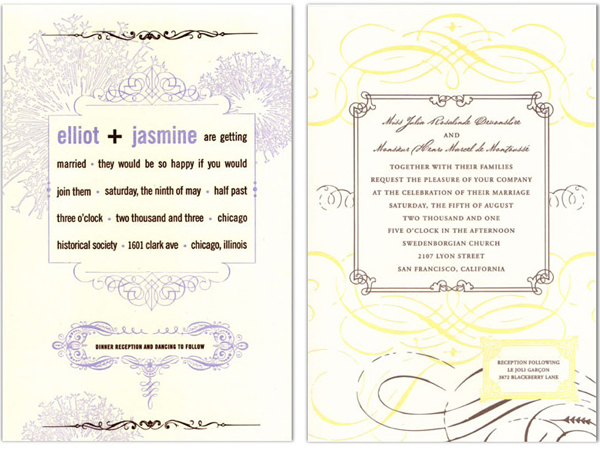 elliot + jasmine are getting
married • they would be so happy if you would
join them • saturday, the ninth of may • half past
three o'clock • two thousand and three • chicago
historical society • 1601 clark ave • chicago, illinois
DINNER RECEPTION AND DANCING TO FOLLOW
Miss Julia Rosalinde Devonshire
AND
Monsieur Henri Marcel de Montoussé
TOGETHER WITH THEIR FAMILIES
REQUEST THE PLEASURE OF YOUR COMPANY
AT THE CELEBRATION OF THEIR MARRIAGE
SATURDAY, THE FIFTH OF AUGUST
TWO THOUSAND AND ONE
FIVE O'CLOCK IN THE AFTERNOON
SWEDENBORGIAN CHURCH
2107 LYON STREET
SAN FRANCISCO, CALIFORNIA
RECEPTION FOLLOWING
LE JOLI GARÇON
3872 BLACKBERRY LANE